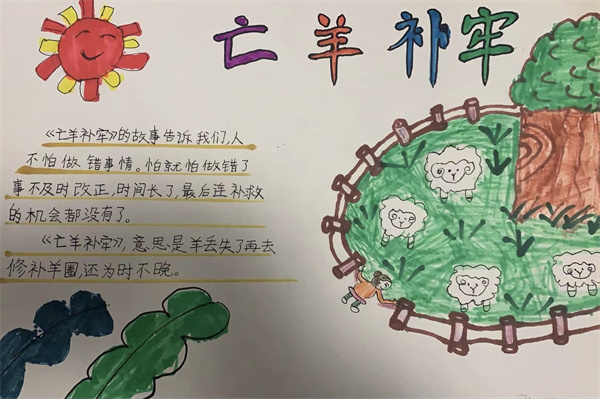 亡羊补牢
《亡羊补牢》的故事告诉我们,人
不怕做错事情。怕就怕做错了
事不及时改正,时间长了,最后连补救
的机会都没有了。
《亡羊补牢》,意思是羊丢失了再去
修补羊圈,还为时不晚。